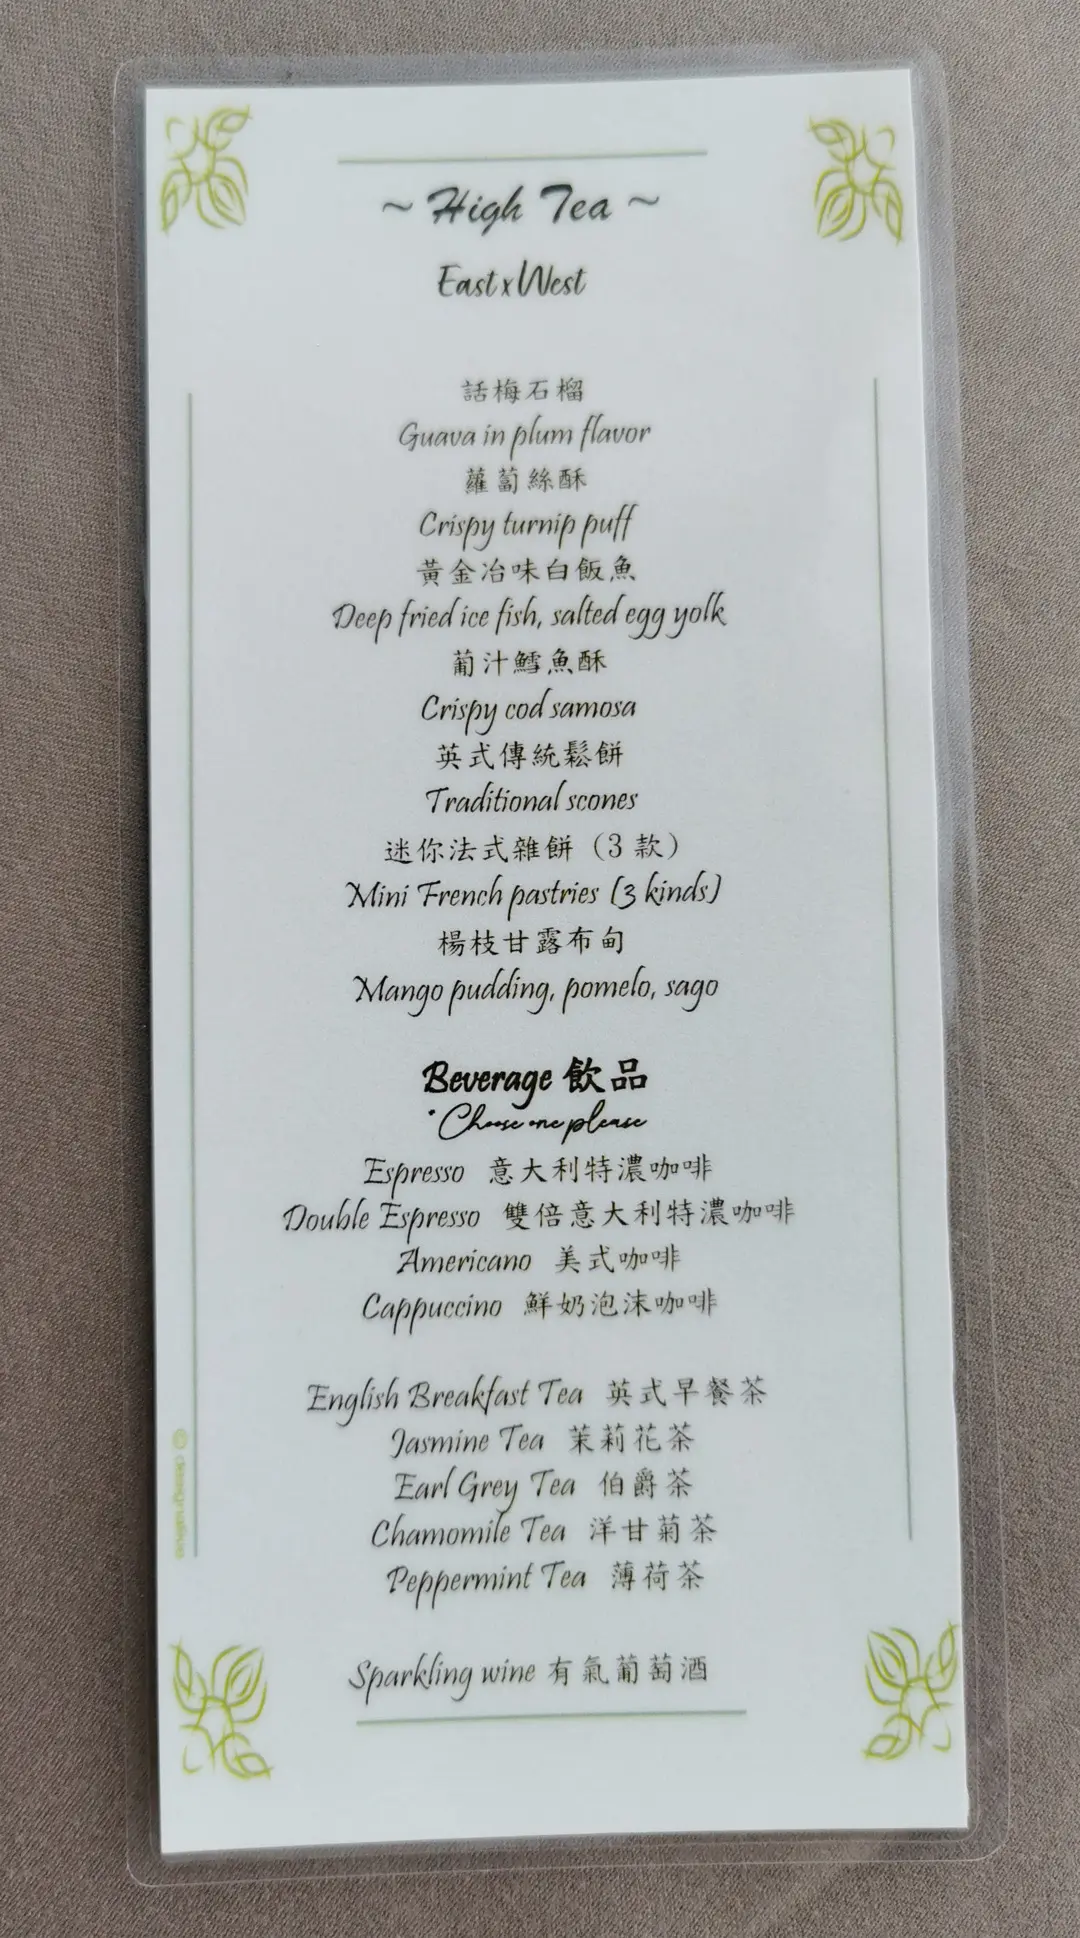 ~ High Tea ~
East x West
話梅石榴
Guava in plum flavor
蘿蔔絲酥
Crispy turnip puff
黃金冶味白飯魚
Deep fried ice fish, salted egg yolk
葡汁鱈魚酥
Crispy cod samosa
英式傳統鬆餅
Traditional scones
迷你法式雜餅（3 款）
Mini French pastries (3 kinds)
楊枝甘露布甸
Mango pudding, pomelo, sago
Beverage 飲品
*Choose one please
Espresso 意大利特濃咖啡
Double Espresso 雙倍意大利特濃咖啡
Americano 美式咖啡
Cappuccino 鮮奶泡沫咖啡
English Breakfast Tea 英式早餐茶
Jasmine Tea 茉莉花茶
Earl Grey Tea 伯爵茶
Chamomile Tea 洋甘菊茶
Peppermint Tea 薄荷茶
Sparkling wine 有氣葡萄酒